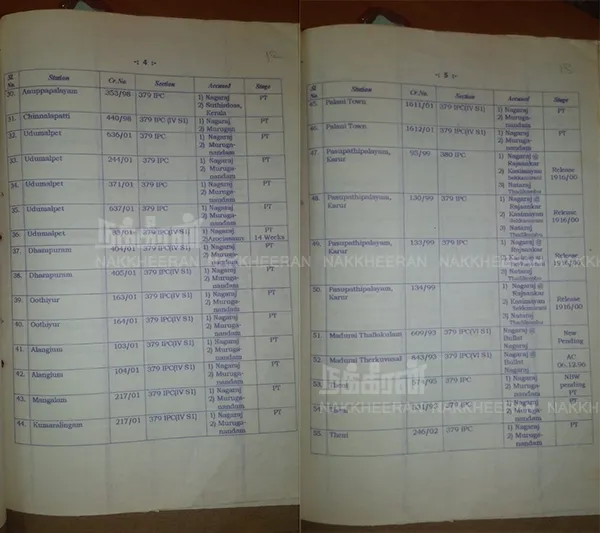 -: 4 :-
Sl. No. Station Cr.No. Section Accused Stage
30. Anuppapalayam 353/98 379 IPC 1) Nagaraj PT
2)
Kerala
31. Chinnalapatti 440/98 379 IPC (IV S1) 1) Nagaraj PT
2) Murugan
32. Udumalpet 636/01 379 IPC 1) Nagaraj PT
2) Muruga-
nandam
33. Udumalpet 244/01 379 IPC 1) Nagaraj PT
2) Muruga-
nandam
34. Udumalpet 371/01 379 IPC 1) Nagaraj PT
2) Muruga-
nandam
35. Udumalpet 637/01 379 IPC 1) Nagaraj PT
2) Muruga-
nandam
36. Udumalpet 379 IPC(IV S1) 1) Nagaraj PT
14 Weeks
37. Dharapuram 404/01 379 IPC(IV S1) 1) Nagaraj PT
2) Muruga-
nandam
38. Dharapuram 405/01 379 IPC(IV S1) 1) Nagaraj PT
2) Muruga-
nandam
39. Oothiyur 163/01 379 IPC(IV S1) 1) Nagaraj PT
2) Muruga-
nandam
40. Oothiyur 164/01 379 IPC(IV S1) 1) Nagaraj PT
2) Muruga-
nandam
41. Alangium 103/01 379 IPC(IV S1) 1) Nagaraj PT
2) Muruga-
nandam
42. Alangium 104/01 379 IPC(IV S1) 1) Nagaraj PT
2) Muruga-
nandam
43. Mangalam 217/01 379 IPC(IV S1) 1) Nagaraj PT
2) Muruga-
nandam
44. Kumaralingam 217/01 379 IPC(IV S1) 1) Nagaraj PT
2) Muruga-
nandam
-: 5 :-
Sl. No. Station Cr.No. Section Accused Stage
45. Palani Town 1611/01 379 IPC(IV S1) 1) Nagaraj PT
2) Muruga-
nandam
46. Palani Town 1612/01 379 IPC(IV S1) 1) Nagaraj PT
2) Muruga-
nandam
47. Pasupathipalayam, Karur 95/99 380 IPC 1) Nagaraj @ Release
Rajasekar 1916/00
3) Nataraj
48. Pasupathipalayam, Karur 130/99 379 IPC 1) Nagaraj @ Release
Rajasekar 1916/00
3) Nataraj
49. Pasupathipalayam, Karur 133/99 379 IPC 1) Nagaraj @ Release
Rajasekar 1916/00
3) Nataraj
50. Pasupathipalayam, Karur 134/99 1) Nagaraj @ Release
Rajasekar 1916/00
3) Nataraj
51. Madurai Thallakulam 669/93 379 IPC(IV S1) Nagaraj @ New
Bullet Pending
Nagaraj
52. Madurai Therkuvasal 843/93 379 IPC(VI S1) Nagaraj @ AC
Bullet 06.12.96
Nagaraj
53. Theni 379 IPC 1) Nagaraj NBW
2) Muruga- pending
nandam PT
54. Theni 379 IPC 1) Nagaraj PT
2) Muruga-
nandam
55. Theni 246/02 379 IPC 1) Nagaraj PT
2) Muruga-
nandam
நக்கீரன்
NAKKHEERAN